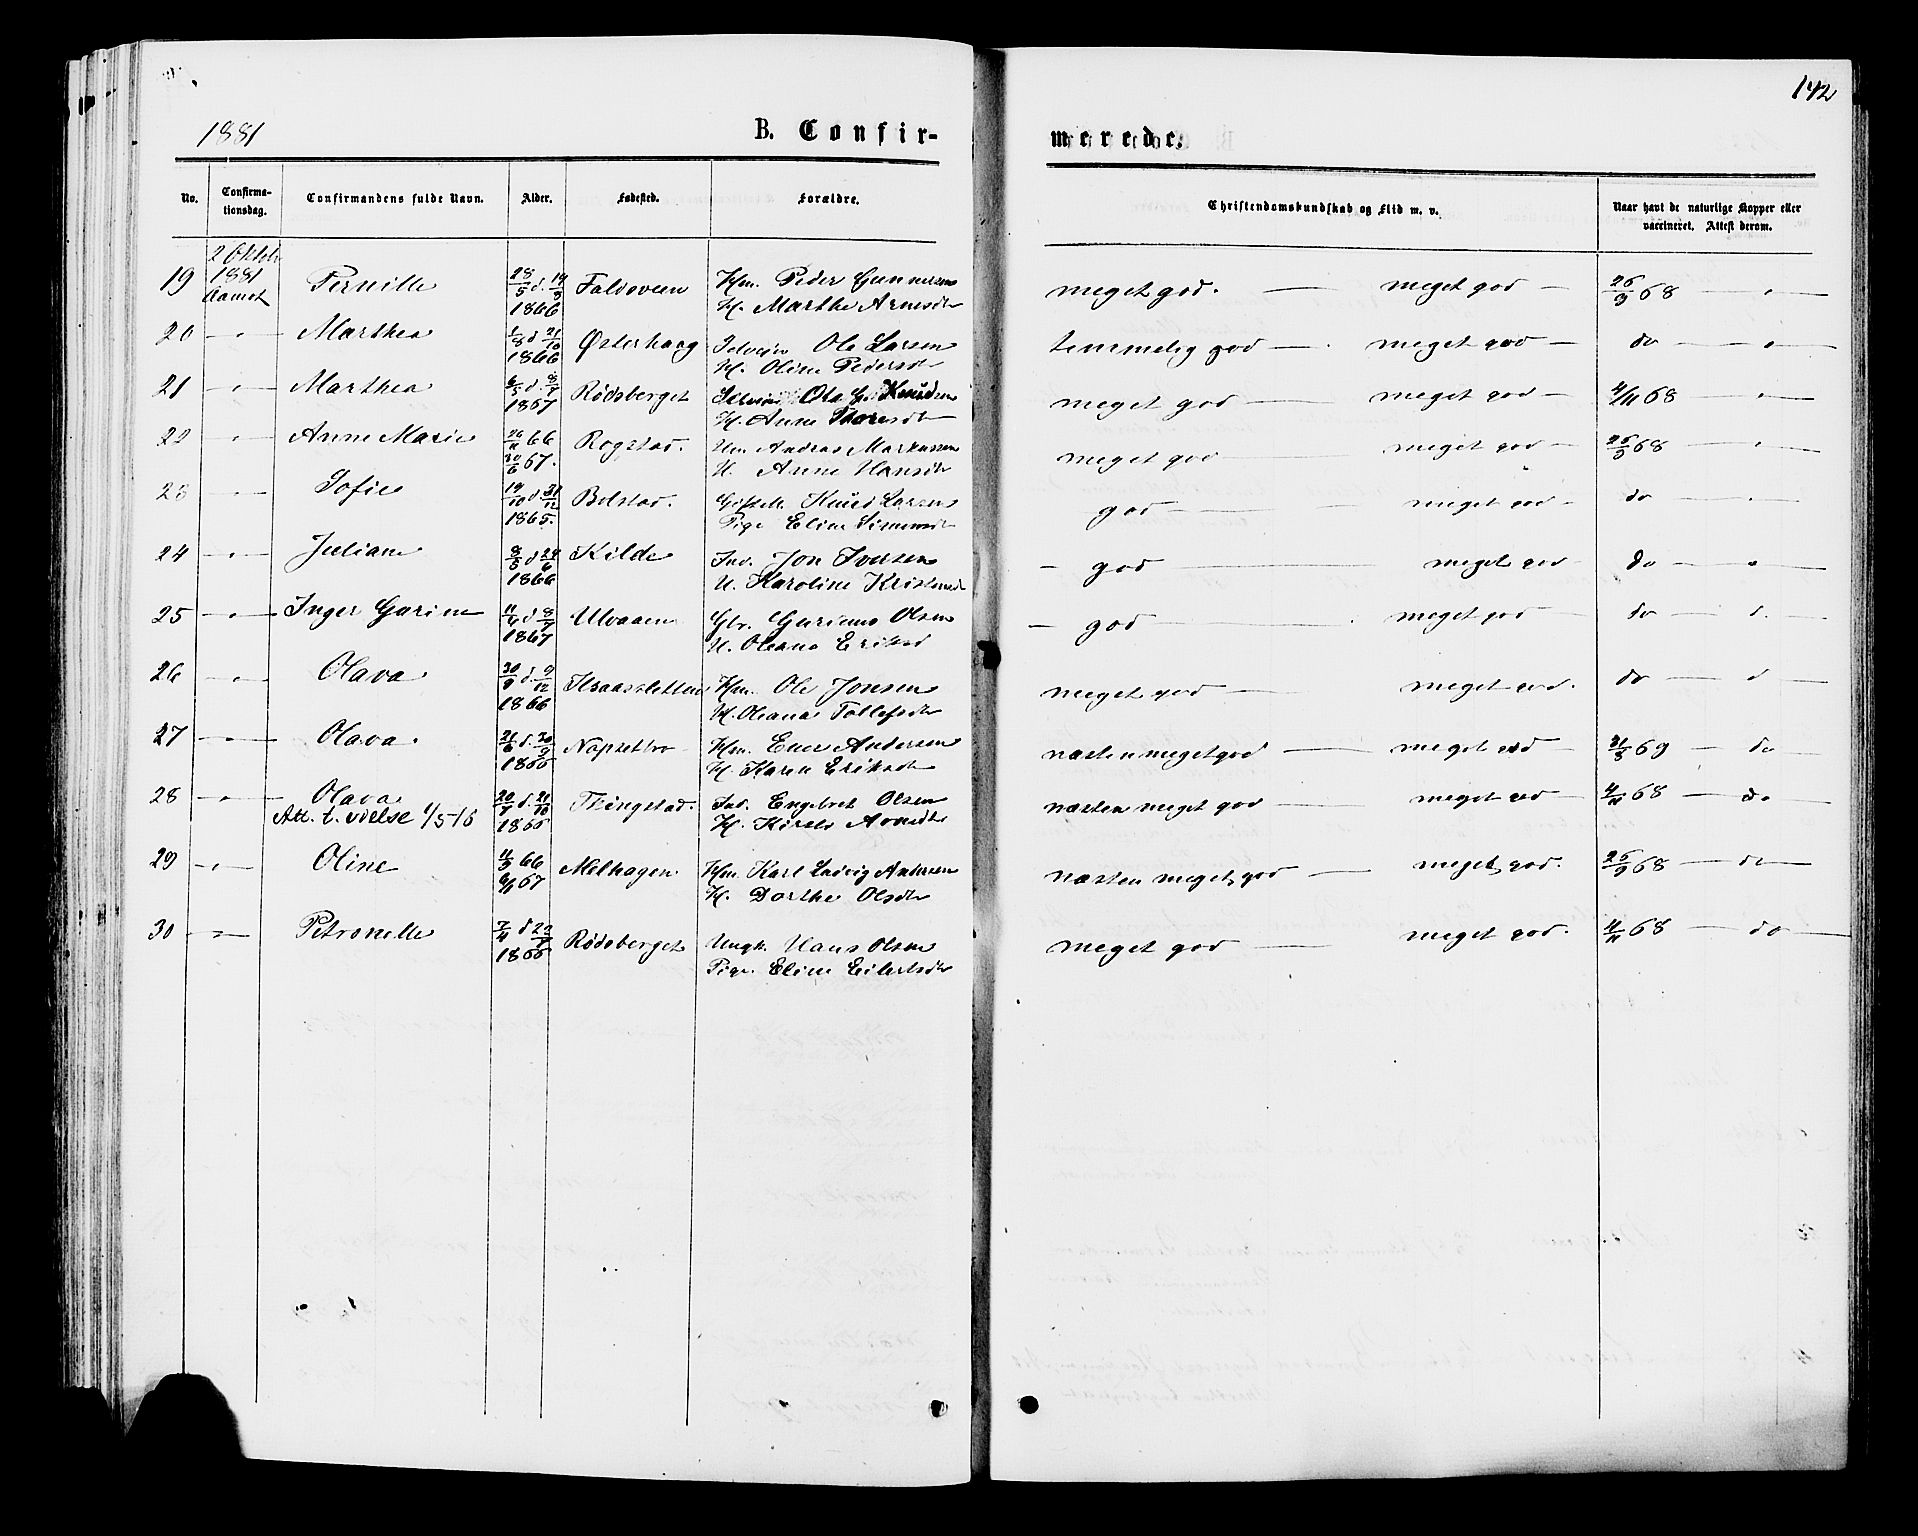 142
1881 B. Confir- merede.
No. Confirma-tionsdag. Confirmandens fulde Navn. Alder. Fødested. Forældre. Christendomskundskab og Flid m. v. Naar havt de naturlige Kopper eller vaccineret. Attest derom.
2 Oktob
19 1881 Pernille 28/5 d. 19/8 Faldsveen Hm. Peder Gunnersen meget god. — meget god — 26/9 68 — "
Aamot 1866 H. Marthe Arnesdt
20 " Marthea 1/8 d 21/10 Østerhaag Selvejer Ole Larsen temmelig god — meget god — do — "
1866 H. Oline Pedersdt
21 " Marthea 6/5 d. 8/7 Rødsberget Ole Knudsen meget god — meget god — 4/11 68 — "
1867 H. Anne Thoresdt
22 " Anne Marie 26/11 66 Rogstad. Hm Andreas Markussen meget god — meget god — 26/9 68 — "
30/6 67. H. Anne Hansdt
23 " Sofie 19/10 d 31/12 Bolstad. Knud Larsen god — meget god — do — "
1865. Pige Eline Simensdt
24 " Juliane 8/5 d 24/6 Kilde Ind. Jon Iversen — god — meget god — do — "
1866 H. Karoline Kristensdt
25 " Inger Garine 11/4 d 8/7 Ulvaaen Gbr. Guriums Olsen — god — meget god — do — d.
1867 H. Oleana Eriksd
26 " Olava 30/9 d. 9/12 Kraassletten Hm. Ole Jonsen meget god — meget god. do — d —
1866 H. Oleana Tollefsdt
27 " Olava. 21/6 d. 30/9 Hm. Ener Andersen næsten meget god — meget god — 31/8 69 — do
1866 H. Karen Eriksdt
28 " Olava 20/7 d. 21/10 Thingstad. Ind. Engebret Olsen næsten meget god — meget god — 4/11 68 — do
Att. t. vielse 1/5-16 1866 H. Kirsti Arnedt
29 " Oline 11/9 66 Melhagen Hm. Karl Ludvig Andersen næsten meget god — meget god. 26/9 68 — do
6/1 67 H. Dorthe Olsdt
30 " Petronelle 7/4 d 22/7 Rødsberget Ungk. Hans Olsen meget god — meget god. 4/11 68 — do
1866 Pige. Eline Eilertsdt